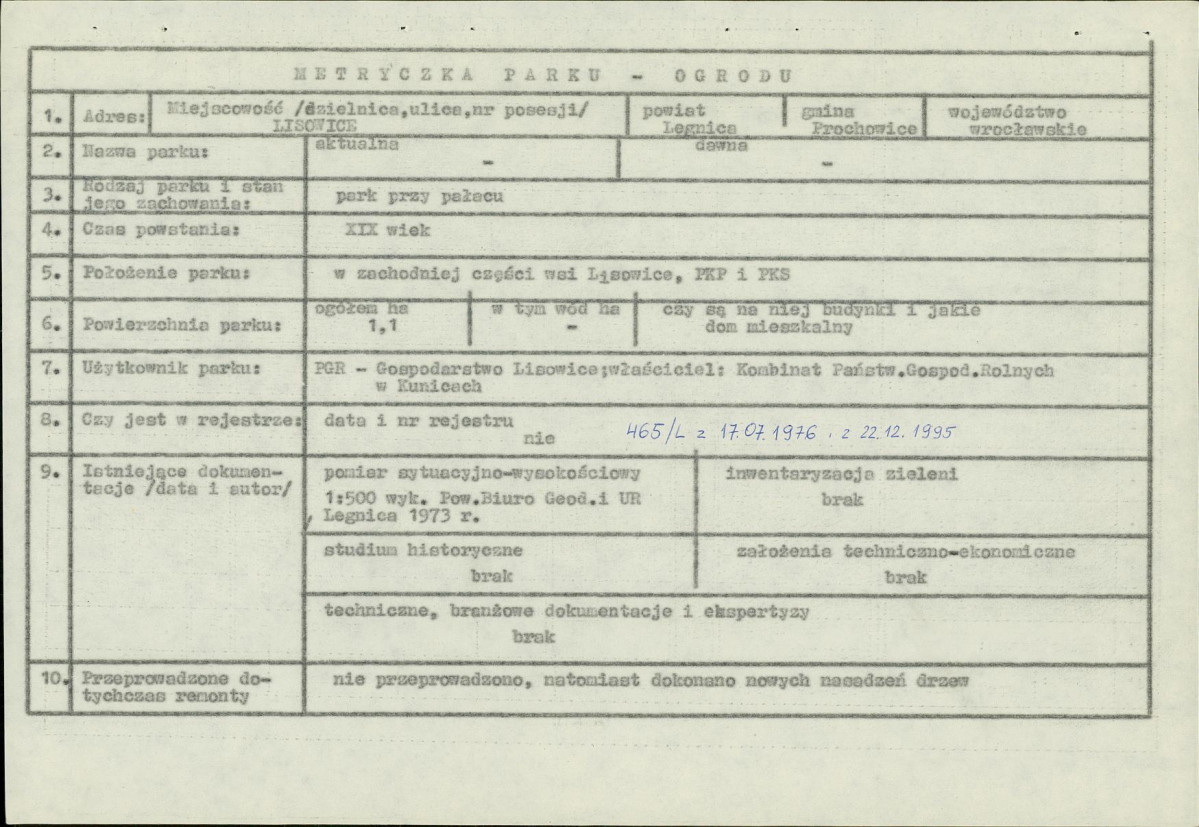 METRYCZKA PARKU - OGRODU
1. Adres: Miejscowość /dzielnica,ulica,nr posesji/ powiat gmina województwo
LISOWICE Legnica Prochowice wrocławskie
2. Nazwa parku: aktualna dawna
- -
3. Rodzaj parku i stan
jego zachowania: park przy pałacu
4. Czas powstania: XIX wiek
5. Położenie parku: w zachodniej części wsi Lisowice, PKP i PKS
6. Powierzchnia parku: ogółem ha w tym wód ha czy są na niej budynki i jakie
1,1 - dom mieszkalny
7. Użytkownik parku: PGR - Gospodarstwo Lisowice;właściciel: Kombinat Państw.Gospod.Rolnych
w Kunicach
8. Czy jest w rejestrze: data i nr rejestru
nie 465/L z 17.07.1976 . z 22.12.1995
9. Istniejące dokumen-
tacje /data i autor/
pomiar sytuacyjno-wysokościowy
1:500 wyk. Pow.Biuro Geod.i UR
Legnica 1973 r.
inwentaryzacja zieleni
brak
studium historyczne
brak
założenia techniczno-ekonomiczne
brak
techniczne, branżowe dokumentacje i ekspertyzy
brak
10. Przeprowadzone do-
tychczas remonty
nie przeprowadzono, natomiast dokonano nowych nasadzeń drzew